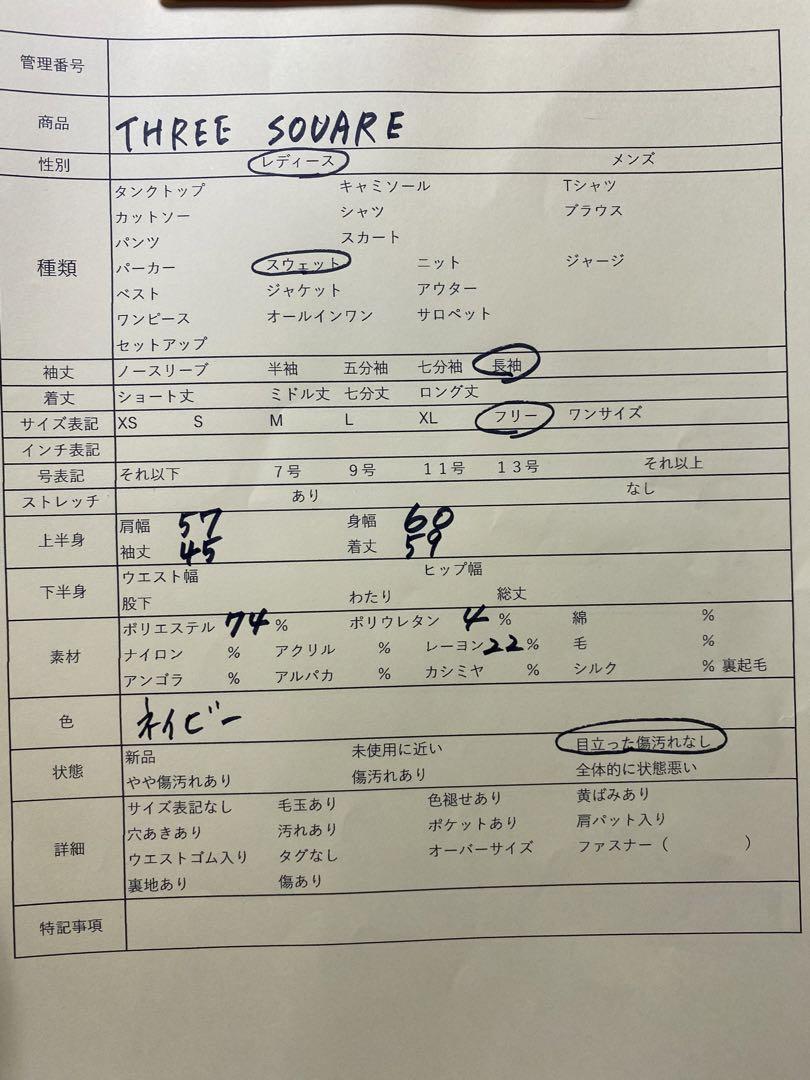 管理番号
商品 THREE SQUARE
性別 レディース メンズ
種類
タンクトップ キャミソール Tシャツ
カットソー シャツ ブラウス
パンツ スカート
パーカー スウェット ニット ジャージ
ベスト ジャケット アウター
ワンピース オールインワン サロペット
セットアップ
袖丈 ノースリーブ 半袖 五分袖 七分袖 長袖
着丈 ショート丈 ミドル丈 七分丈 ロング丈
サイズ表記 XS S M L XL フリー ワンサイズ
インチ表記
号表記 それ以下 7号 9号 11号 13号 それ以上
ストレッチ あり なし
上半身
肩幅 57 身幅 60
袖丈 45 着丈 59
下半身
ウエスト幅 ヒップ幅
股下 わたり 総丈
素材
ポリエステル 74 % ポリウレタン 4 % 綿 %
ナイロン % アクリル % レーヨン 22 % 毛 %
アンゴラ % アルパカ % カシミヤ % シルク % 裏起毛
色 ネイビー
状態
新品 未使用に近い 目立った傷汚れなし
やや傷汚れあり 傷汚れあり 全体的に状態悪い
詳細
サイズ表記なし 毛玉あり 色褪せあり 黄ばみあり
穴あきあり 汚れあり ポケットあり 肩パット入り
ウエストゴム入り タグなし オーバーサイズ ファスナー( )
裏地あり 傷あり
特記事項